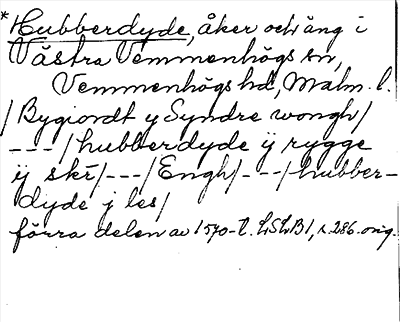 *Hubberdyde, åker och äng i
Västra Vemmenhögs sn,
Vemmenhögs hd, Malm. l.
/Bygiordt y Syndre wongh/
---/hubberdyde ÿ rygge
ÿ skr̄/---/Engh/---/hubber-
dyde j les/
förra delen av 1570-t. LSLB1, s. 286. orig.